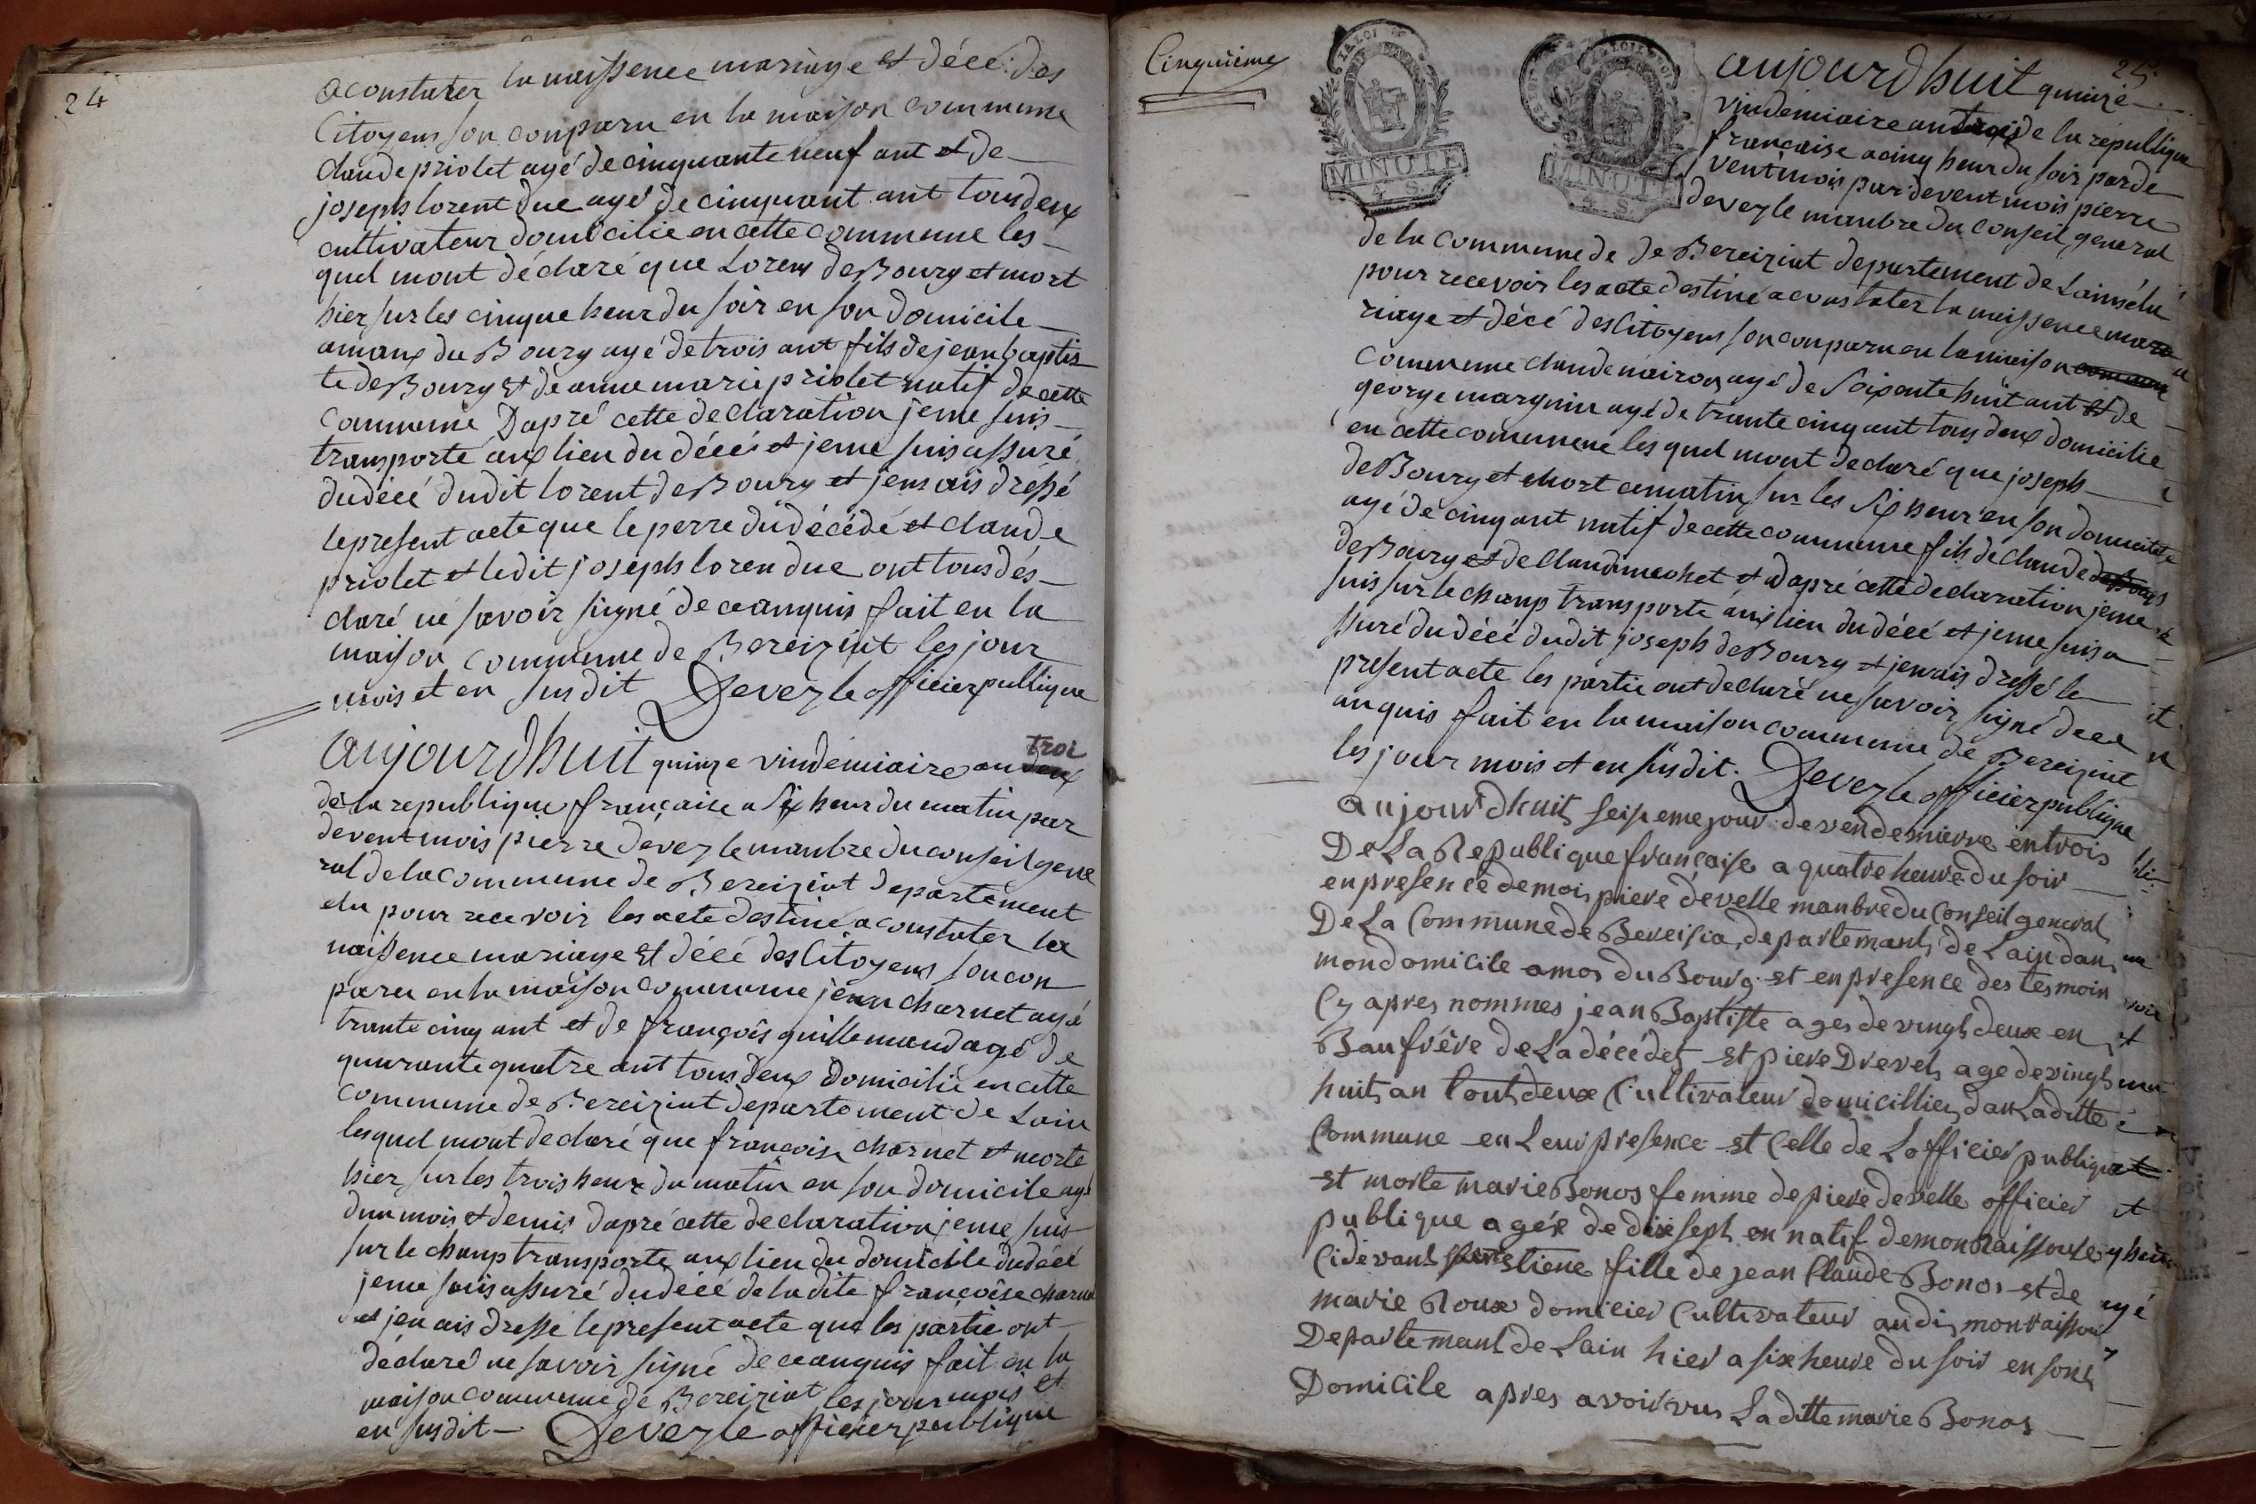 24
a constater la naissence mariage et décé des
Citoyens son conparu en la maison commune
claude priolet agé de cinquante neuf ant et de
joseph lorent due agé de cinquant ant tous deux
cultivateur domicilié en cette commune les
quel mont déclaré que Lorens deBourg et mort
hier sur les cinque heur du soir en son domicile
amaux du Bourg agé de trois ant fils de jean baptis
te deBourg et de anne marie priolet natif de cette
Commune Dapré cette declaration jeme suis
transporté aux lien du décés et jeme suis assuré
du décé dudit lorent deBourg et jens ais dréssé
le present acte que le perre du décédé et claude
priolet et ledit joseph loren due ont tous dés
claré né savoir signé de ce anquis fait en la
maison commune de Bereiziat les jour
mois et en susdit Devezle officier publique
aujourdhuit quinze vindemiaire an troi
de la republique française a six heur du matin par
devent mois pierre devezle manbre du conseil gene
ral de la commune de Bereiziat departement
elu pour recevoir les acte destiné a constater la
naissence mariage et décé des Citoyens son con
paru en la maison commune jean charnet agé
trante cinq ant et de françois guillemaud agé de
quarante quatre ant tous deux Domicilié en cette
Commune de Bereiziat departement de Lain
lesquel mont declaré que françoise charnet et morte
hier sur les trois heur du matin en son domicile agé
dun mois et demis dapré cette declaration jeme suis
sur le champ transporte aux lien du domicile dudécé
jeme suis assuré du décé de ladite françoise charnet
et jen ais dresse le present acte que les partie ont
déclaré ne savoir signé de ce anquis fait en la
maison commune de Bereiziat les jour mois et
en susdit Devezle officier publique
Cinquième
LA LOI
MINUTE
4. S.
LA LOI
MINUTE
4. S.
25.
aujourdhuit quinze
vindemiaire an trois de la republique
française a cinq heur du soir par de
vent mois par devent mois pierre
devezle manbre du conseil general
de la commune de de Bereiziat departement de Lainsélu
pour recevoir les acte destiné a constater la naissence ma
riage et décé des Citoyens son conparu en la maison commune
commune claude noiron agé de soixante huit ant et de
george marguin agé de trante cinq ant tous deux domicilié
en cette commune les quel mont declaré que joseph
deBourg et mort ce matin sur les six heur en son domicile
agé de cinq ant natif de cette commune fils de claude deBourg
deBourg et de et dapré cette declaration jeme
suis sur le champ transporte aux lien du décé et jeme suis a
ssuré du décé dudit joseph deBourg et jenais dressé le
present acte les partie ont declaré ne savoir signé de ce
anquis fait en la maison commune de Bereiziat
les jour mois et en susdit. Devezle officier publique
aujourdhuit seisieme jour de vendemiaire entrois
De La Republique française a quatre heure du soir
en presence de moi piere develle manbre du Conseil general
De La Commune de Bereisia departemant de Lain dans
mon domicile amos du Bourg et en presence des tesmoin
Cy apres nommes jean Baptiste ages de vingt deux en
Baufrére de La décédet et piere Drevet age de vingt
huit an tout deux Cultivateur domicillies dan Laditte
Commune en Leur presence et Celle de Lofficier publique
est morte marie Bonos femme de piere develle officier
publique agée de dix sept en natif de
Cidevant fille de jean Claude Bonos et de
marie Roux domicier Cultivateur
Departemant de Lain hier a six heure du soir en sont
Domicile apres avoir vus Laditte marie Bonos